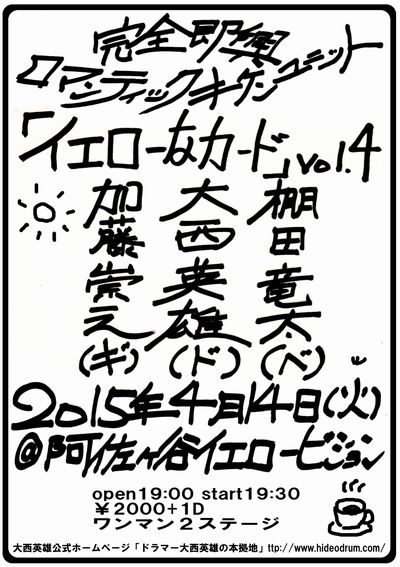 完全即興
ロマンティックキケンユニット
「イエローなカード」vol.4
加藤崇之(ギ)
大西英雄(ド)
棚田竜太(ベ)
2015年4月14日(火)
@阿佐ヶ谷イエロービジョン
open19:00 start19:30
￥2000+1D
ワンマン2ステージ
大西英雄公式ホームページ「ドラマー大西英雄の本拠地」ttp://www.hideodrum.com/